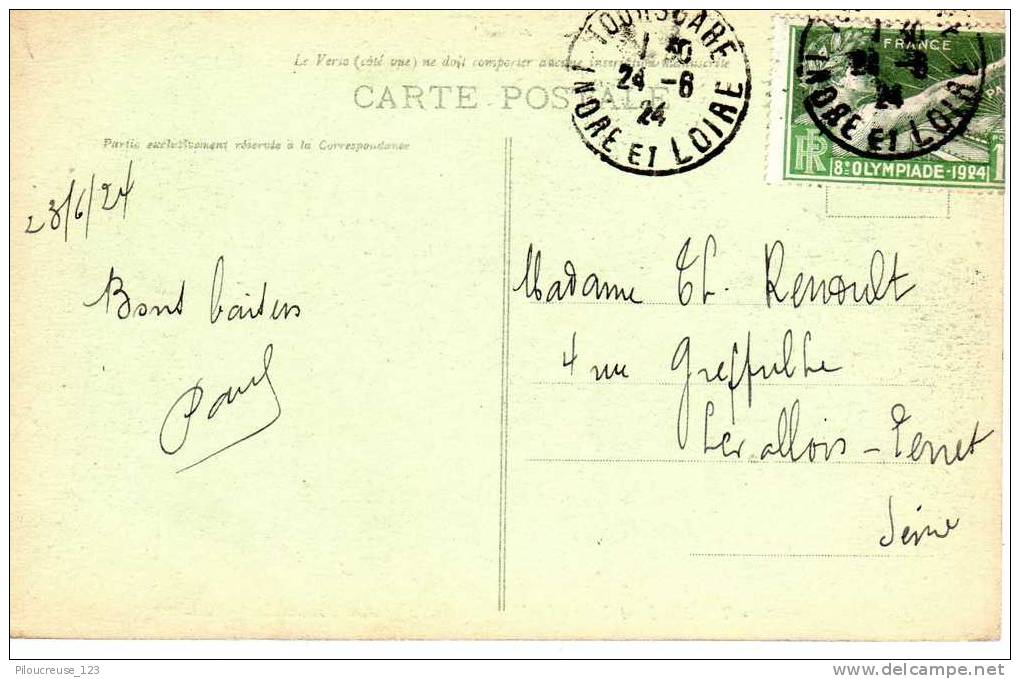 Le Verso (côté vue) ne doit comporter aucune inscription manuscrite
CARTE POSTALE
Partie exclusivement réservée à la Correspondance
TOURS GARE
1 30
24 - 6
24
INDRE ET LOIRE
FRANCE
RF
8e OLYMPIADE - 1924
23/6/24
Bons baisers
Paul
Madame Th. Renoult
4 rue Greffulhe
Levallois-Perret
Seine
Piloucreuse_123
www.delcampe.net